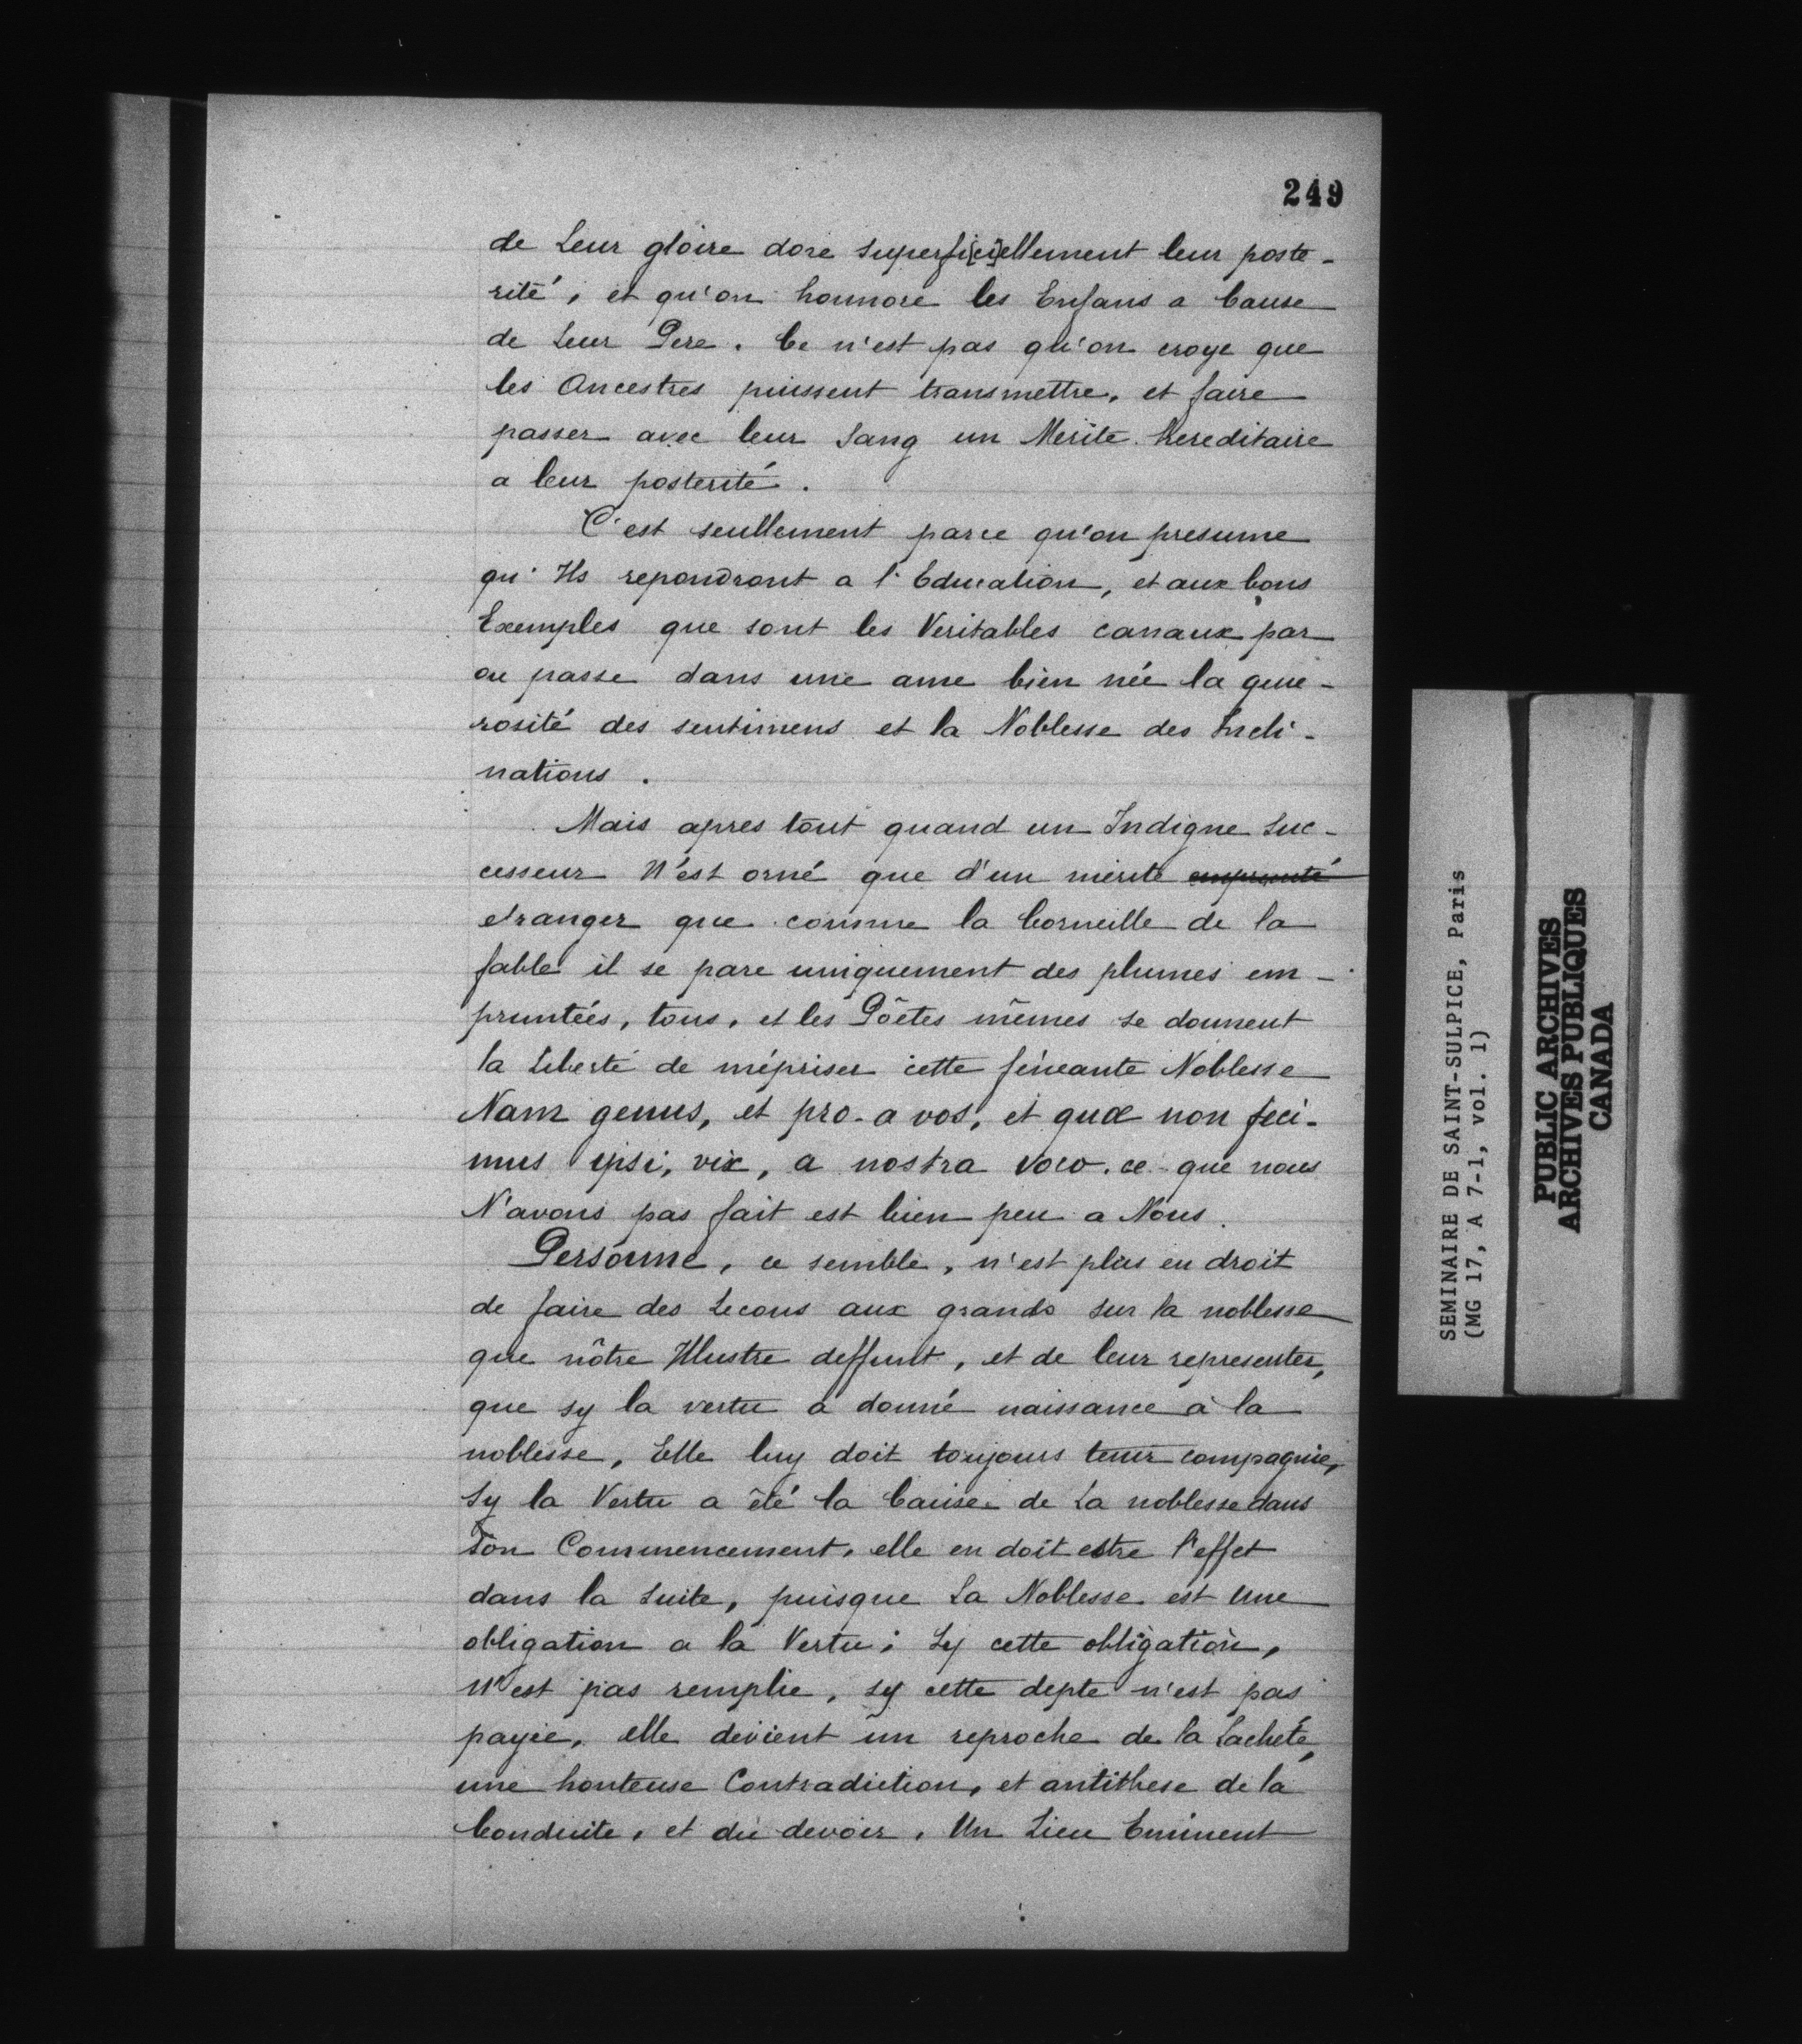 249
de Leur gloire dore superfi[ci]ellement leur poste-
rité, et qu'on honnore les Enfans a Cause
de Leur Pere. Ce n'est pas qu'on croye que
les Ancestres puissent transmettre, et faire
passer avec leur Sang un Merite hereditaire
a leur posterité.
C'est seullement parce qu'on presume
qu'Ils repondront a l'Education, et aux bons
Exemples que sont les Veritables canaux par
ou passe dans une ame bien née la gene-
rosité des sentimens et la Noblesse des Incli-
nations.
Mais apres tout quand un Indigne Suc-
cesseur N'est orné que d'un merite emprunté
etranger que comme la Corneille de la
fable il se pare uniquement des plumes em-
pruntées, tous, et les Pöetes mêmes se donnent
la Liberté de mépriser cette féneante Noblesse
Nam genus, et pro-a vos, et quæ non feci-
mus ipsi, vix, a nostra voco. ce que nous
N'avons pas fait est bien peu a Nous.
Personne, ce semble, n'est plus en droit
de faire des Lecons aux grands sur la noblesse
que nôtre Illustre deffunt, et de leur representer,
que sy la vertu a donné naissance à la
noblesse, Elle luy doit toujours tenir compagnie,
Sy la Vertu a êté la Cause de La noblesse dans
Son Commencement, elle en doit estre l'effet
dans la Suite, puisque La Noblesse est Une
obligation a la Vertu; Sy cette obligation,
N'est pas remplie, sy cette depte n'est pas
payée, elle devient un reproche de la Lacheté,
une honteuse Contradiction, et antithese de la
Conduite, et du devoir. Un Lieu Eminent
SEMINAIRE DE SAINT-SULPICE, Paris
(MG 17, A 7-1, vol. 1)
PUBLIC ARCHIVES
ARCHIVES PUBLIQUES
CANADA